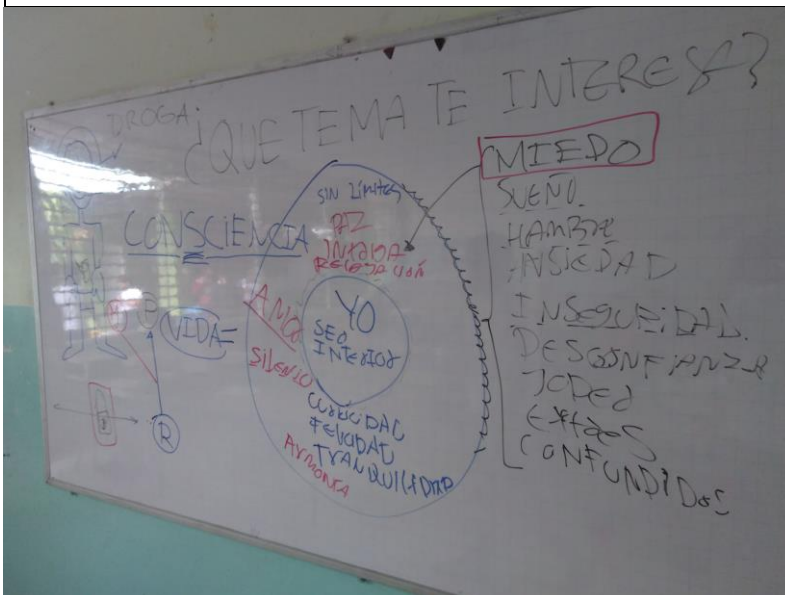 DROGA:
¿QUE TEMA TE INTERESA?
CONSCIENCIA
VIDA=
R
SIN LÍMITES
PAZ
INTERNA
RELAJACIÓN
AMOR
SILENCIO
YO
SER
INTERIOR
FELICIDAD
TRANQUILIDAD
ARMONIA
MIEDO
SUEÑO.
HAMBRE
ANSIEDAD
INSEGURIDAD.
DESCONFIANZA
CONFUNDIDOS